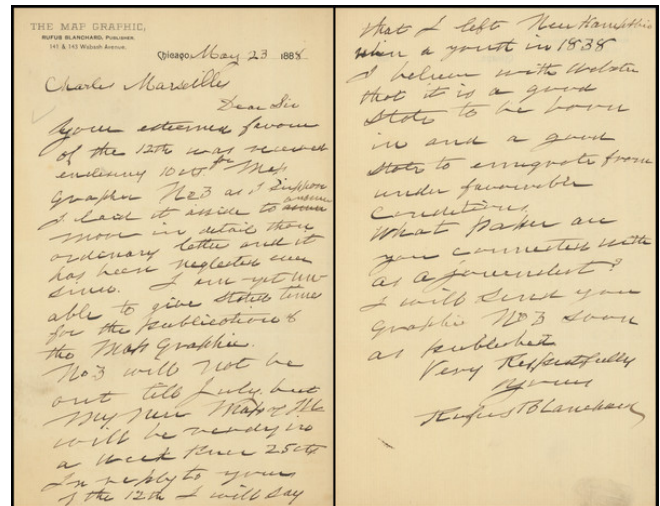 THE MAP GRAPHIC,
RUFUS BLANCHARD, PUBLISHER.
Wabash Avenue.
Chicago, May 23 1888
Charles Marseille
Dear Sir
Your esteemed favour
of the 12th was received
enclosing 10 cts. for Map
Graphic No 3 as I suppose
I laid it aside to answer
more in detail than
ordinary letter and it
has been neglected ever
since. I am yet un-
able to give stated time
for the publication of
the Map Graphic.
No 3 will not be
out till July, but
my new Map of Ills
will be ready in
a week Price 25 cts
In reply to yours
of the 12th I will say
that I left New Hampshire
when a youth in 1838
I believe with Webster
that it is a good
State to be born
in and a good
State to emigrate from
under favourable
Conditions.
What Paper are
you connected with
as a journalist?
I will send you
Graphic No 3 soon
as published
Very Respectfully
Yours
Rufus Blanchard